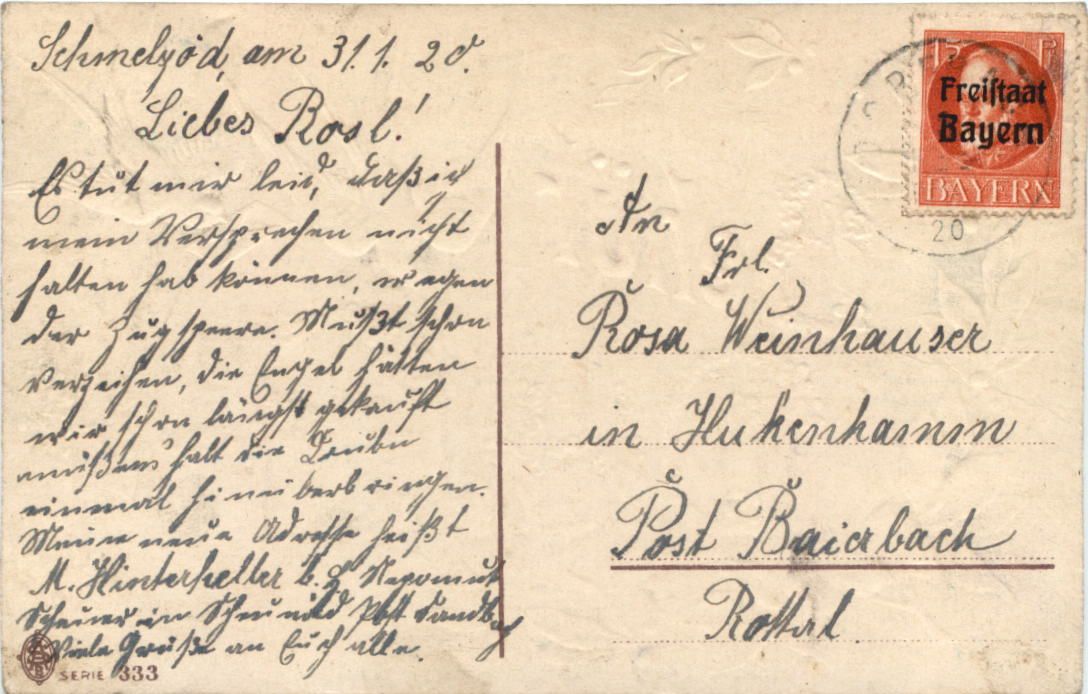 Schmelzöd, am 31.1.20.
Liebes Rosl!
Es tut mir leid, daß ich
mein Versprechen nicht
halten hab können, wegen
der Zugsperre. Mußt schon
verzeihen, die Engel hätten
wir schon längst gekauft
müßens halt die
einmal hinüberbringen.
Meine neue Adresse heißt
M. Hinterheller b. Nepomuk
in Post
Viele Grüße an Euch alle.
SERIE 333
15 Pf
Freistaat
Bayern
BAYERN
20
An
Frl.
Rosa Weinhauser
in Hukenhamm
Post Baierbach
Rottal.